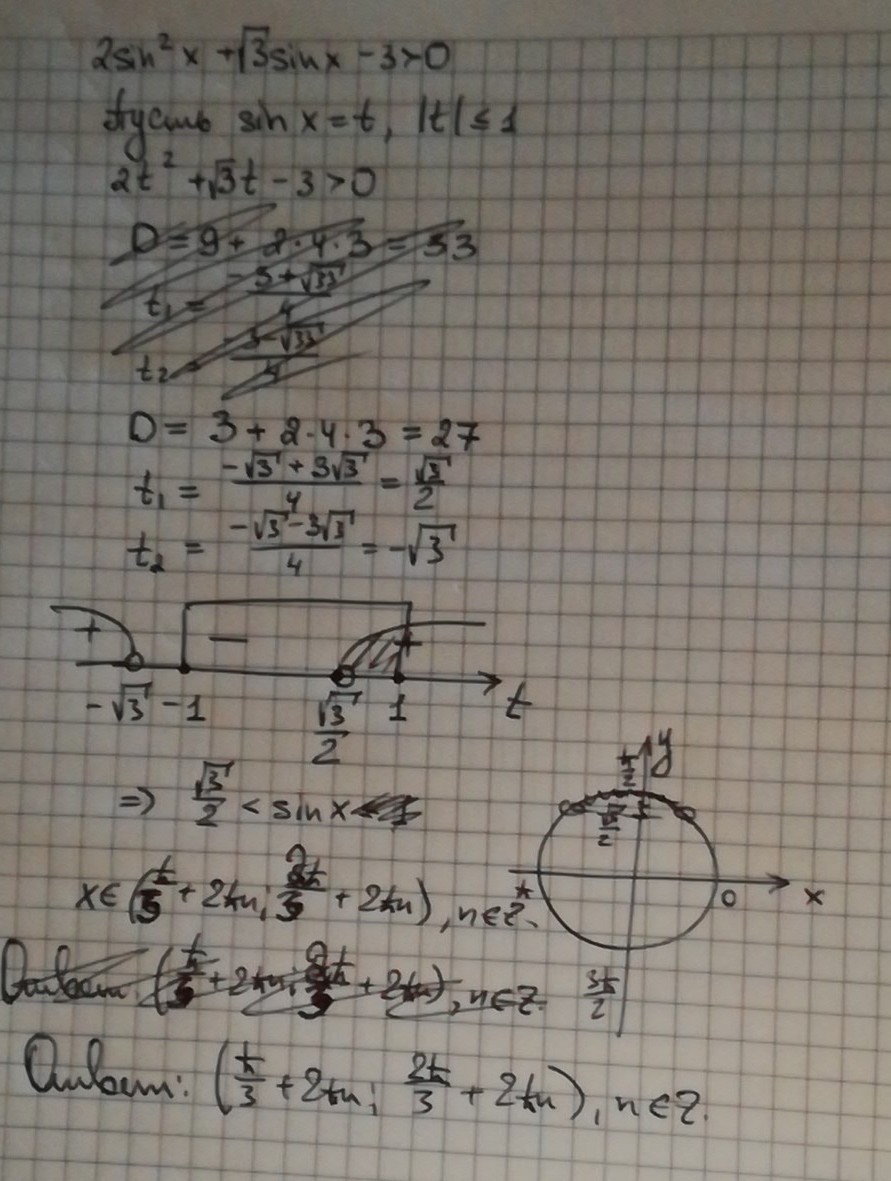 2sin²x + √3 sinx - 3 > 0
Пусть sin x = t, |t| ≤ 1
2t² + √3 t - 3 > 0
D = 9 + 2·4·3 = 33
t₁ = (-3 + √33)/4
t₂ = (-3 - √33)/4
D = 3 + 2·4·3 = 27
t₁ = (-√3 + 3√3)/4 = √3/2
t₂ = (-√3 - 3√3)/4 = -√3
+ − +
-√3 -1 √3/2 1 t
⇒ √3/2 < sin x
y
π/2
√3/2
π 0 x
3π/2
x ∈ (π/3 + 2πn; 2π/3 + 2πn), n ∈ Z.
Ответ: (π/3 + 2πn; 2π/3 + 2πn), n ∈ Z.
Ответ: (π/3 + 2πn; 2π/3 + 2πn), n ∈ Z.